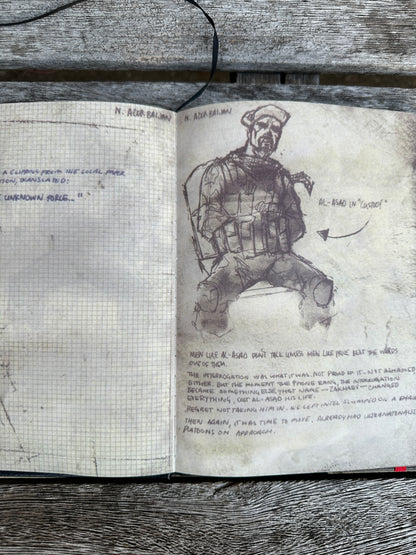 N. AZERBAIJAN
A CLIPPING FROM THE LOCAL PAPER
TION, TRANSLATED:
UNKNOWN FORCE..."
N. AZERBAIJAN
AL-ASAD IN "CUSTODY"
MEN LIKE AL-ASAD DON'T TALK UNLESS MEN LIKE PRICE BEAT THE WORDS
OUT OF THEM.
THE INTERROGATION WAS WHAT IT WAS. NOT PROUD OF IT. NOT ASHAMED
EITHER. BUT THE MOMENT THE PHONE RANG, THE INTERROGATION
BECAME SOMETHING ELSE. THAT NAME -- ZAKHAEV -- CHANGED
EVERYTHING, COST AL-ASAD HIS LIFE.
REGRET NOT TAKING HIM IN. WE LEFT INTEL SLUMPED ON A
THEN AGAIN, IT WAS TIME TO MOVE. ALREADY HAD ULTRANATIONALIST
PLATOONS ON APPROACH.